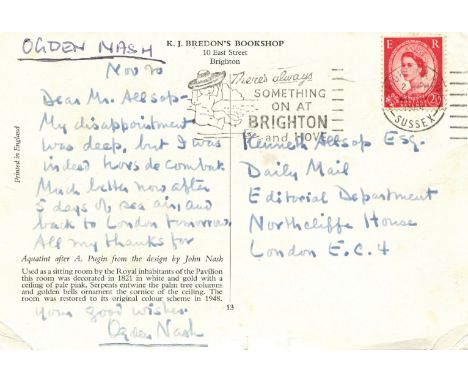 OGDEN NASH
K. J. BREDON'S BOOKSHOP
10 East Street
Brighton
Nov 20
Dear Mr. Allsop-
My disappointment
was deep, but I was
indeed hors de combat.
Much better now after
5 days of sea air, and
back to London tomorrow.
All my thanks for
Aquatint after A. Pugin from the design by John Nash
Used as a sitting room by the Royal inhabitants of the Pavilion
this room was decorated in 1821 in white and gold with a
ceiling of pale pink. Serpents entwine the palm tree columns
and golden bells ornament the cornice of the ceiling. The
room was restored to its original colour scheme in 1948.
your good wishes.
Ogden Nash
Printed in England
13
There's always
SOMETHING
ON AT
BRIGHTON
and HOVE
E R
SUSSEX
Kenneth Allsop Esq.
Daily Mail
Editorial Department
Northcliffe House
London E.C. 4